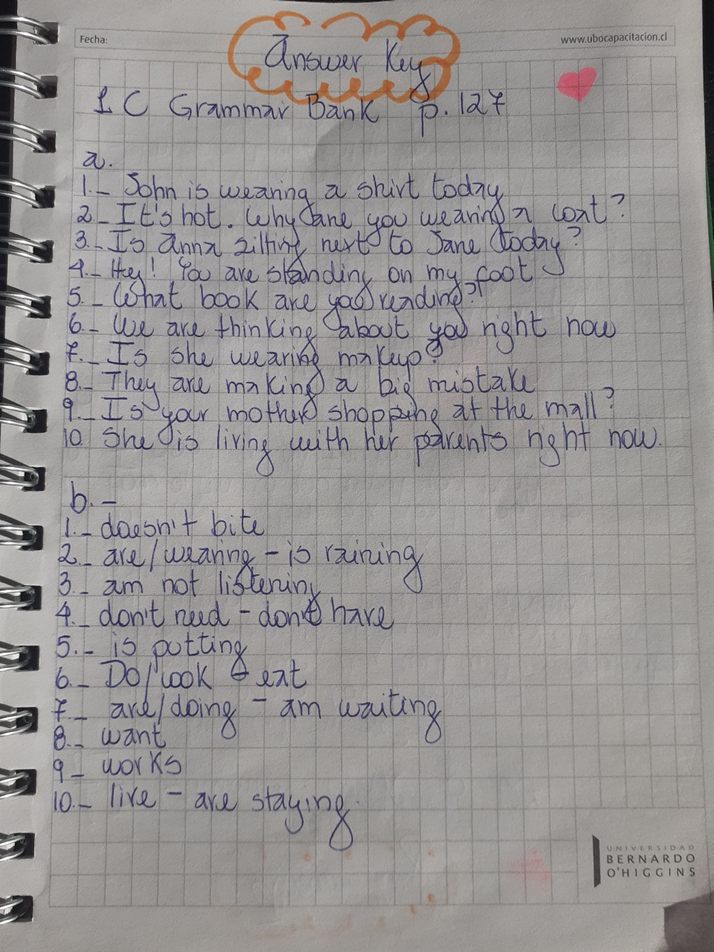 Fecha:
www.ubocapacitacion.cl
Answer Key
1 C Grammar Bank p. 127
a.
1._ John is wearing a shirt today
2_ It's hot. Why are you wearing a coat?
3._ Is Anna sitting next to Jane today?
4._ Hey! You are standing on my foot
5._ What book are you reading?
6_ We are thinking about you right now
7._ Is she wearing makeup?
8._ They are making a big mistake
9_ Is your mother shopping at the mall?
10 She is living with her parents right now.
b.-
1._ doesn't bite
2_ are/wearing - is raining
3_ am not listening
4._ don't need - don't have
5.- is putting
6_ Do/look - eat
7_ are/doing - am waiting
8._ want
9_ works
10._ live - are staying.
UNIVERSIDAD
BERNARDO
O'HIGGINS